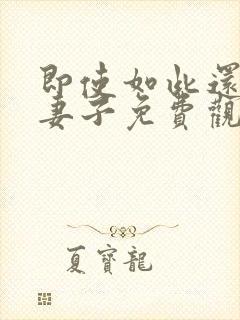 即使如此還
妻子免費觀
夏寶龍